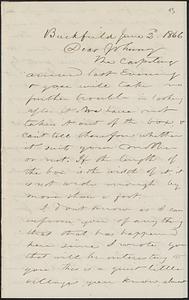 Buckfield June 2d 1866
Dear Johnny
The Carpeting
arrived last Evening
& you will take no
further trouble in looking
after it. We have not
taken it out of the box &
can't tell therefore whether
it will suit your Mother
or not. If the length of
the box is the width of it, it
is not wide enough by
more than a foot.
I don't know as I can
inform you of anything
that has happened
here since I wrote you
that will be interesting to
you. This is a quiet little
village you know where